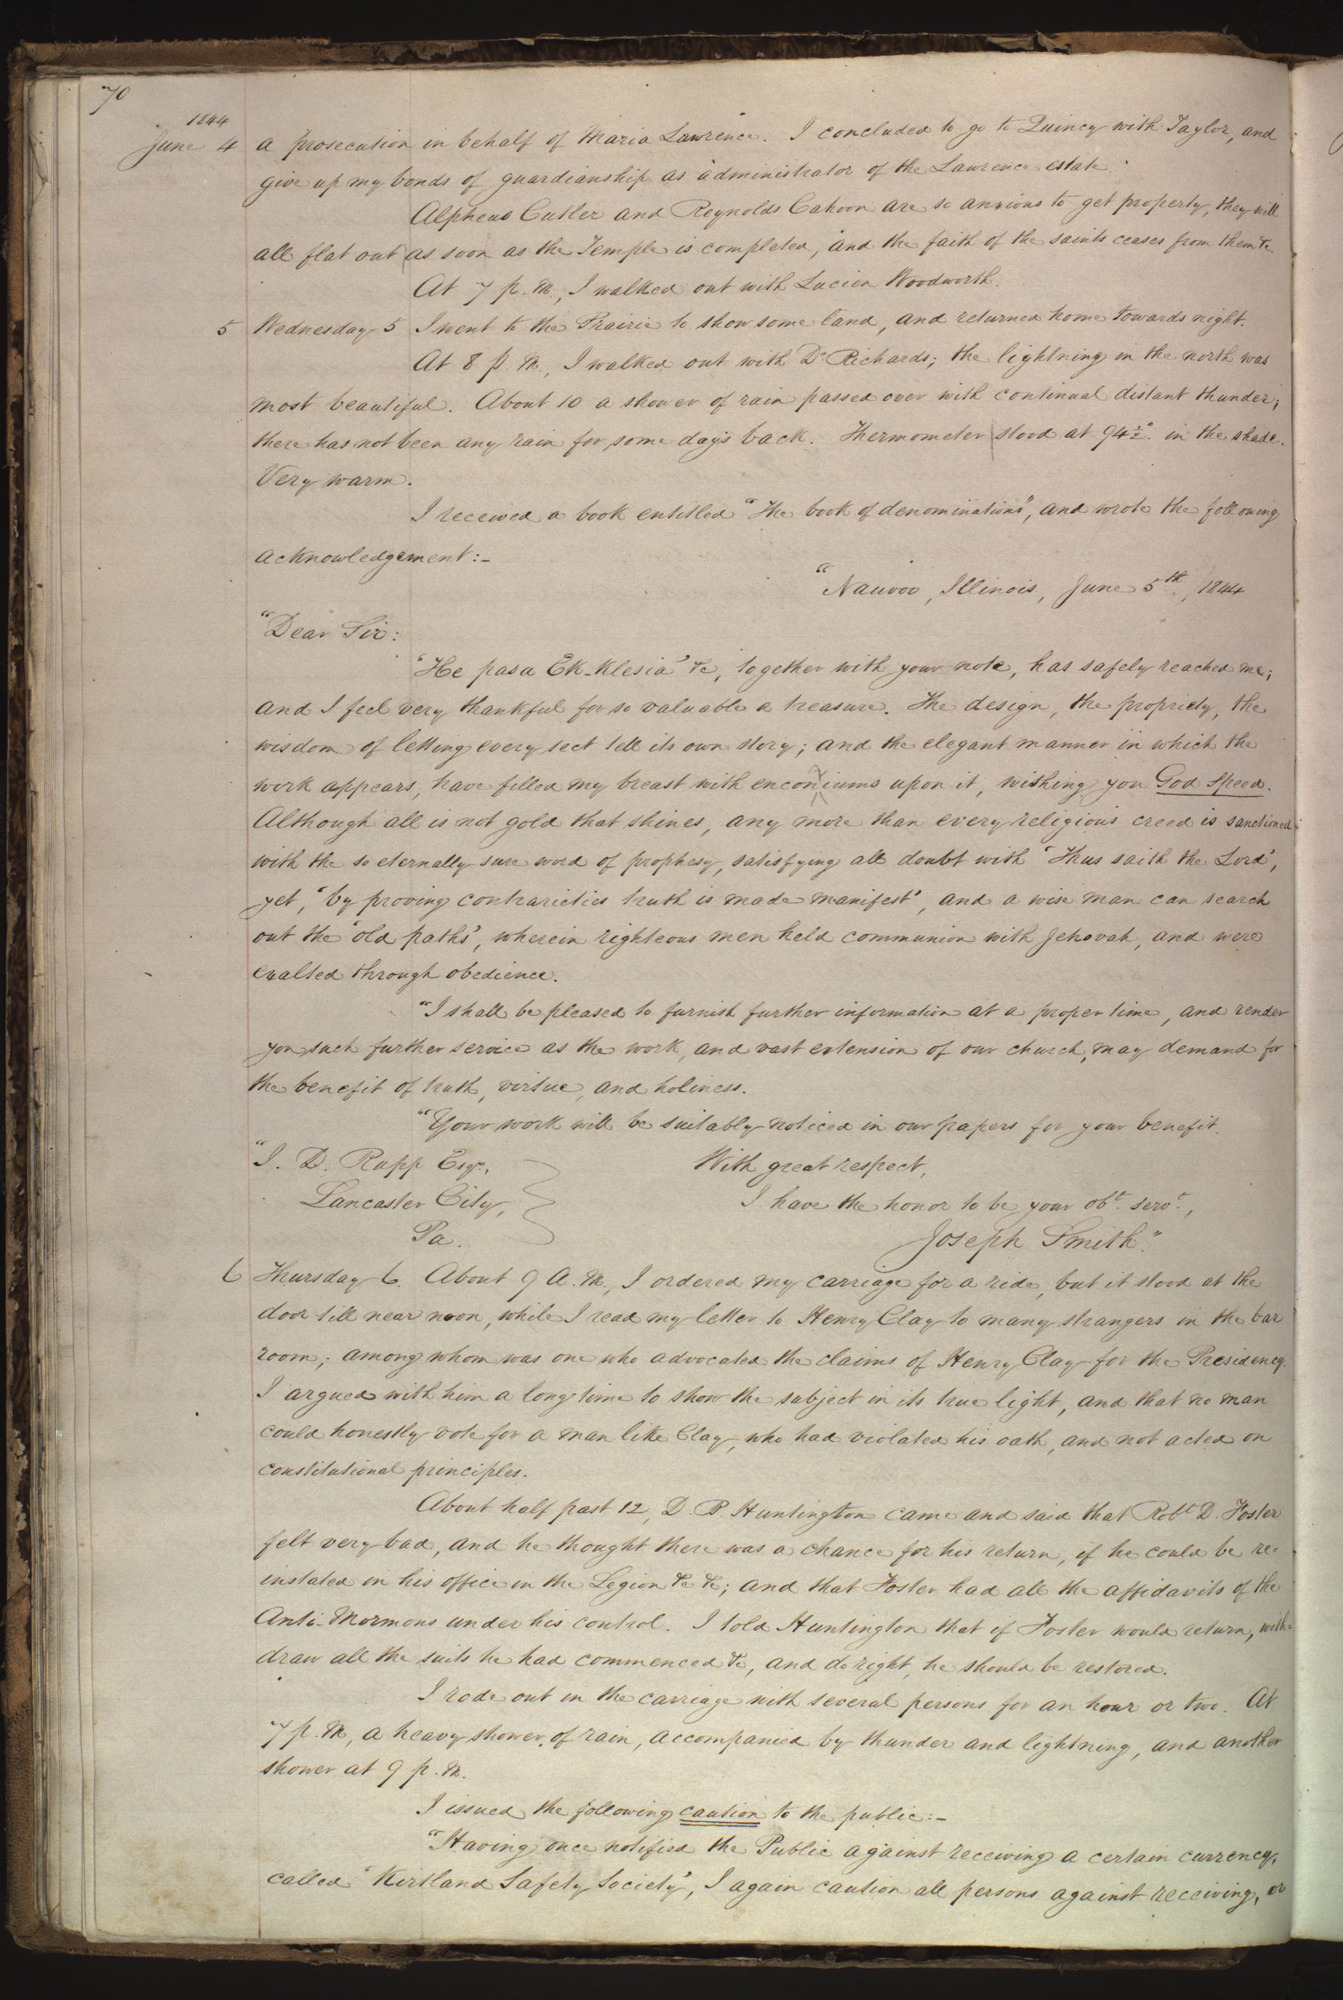 70
1844
June 4 a prosecution in behalf of Maria Lawrence. I concluded to go to Quincy with Taylor, and
give up my bonds of guardianship as administrator of the Lawrence estate.
Alpheus Cutler and Reynolds Cahoon are so anxious to get property, they will
all flat out as soon as the Temple is completed, and the faith of the saints ceases from them &c.
At 7 p. M, I walked out with Lucien Woodworth.
5 Wednesday 5 I went to the Prairie to show some land, and returned home towards night.
At 8 p. M, I walked out with Dr. Richards; the lightning in the north was
most beautiful. About 10 a shower of rain passed over with continual distant thunder;
there has not been any rain for some days back. Thermometer stood at 94½° in the shade.
Very warm.
I received a book entitled "The book of denominations", and wrote the following
acknowledgement:-
"Nauvoo, Illinois, June 5th., 1844
"Dear Sir:
"'He pasa Ek-klesia' &c, together with your note, has safely reached me;
and I feel very thankful for so valuable a treasure. The design, the propriety, the
wisdom of letting every sect tell its own story; and the elegant manner in which the
work appears, have filled my breast with enconiums upon it, wishing you God speed.
Although all is not gold that shines, any more than every religious creed is sanctioned
with the so eternally sure word of prophesy, satisfying all doubt with 'Thus saith the Lord',
yet, 'by proving contrarieties truth is made manifest', and a wise man can search
out the 'old paths', wherein righteous men held communion with Jehovah, and were
exalted through obedience.
"I shall be pleased to furnish further information at a proper time, and render
you such further service as the work, and vast extension of our church, may demand for
the benefit of truth, virtue, and holiness.
"Your work will be suitably noticed in our papers for your benefit.
"I. D. Rupp Esqr, With great respect,
Lancaster City, I have the honor to be your obt. servt.,
Pa. Joseph Smith."
6 Thursday 6. About 9 A. M., I ordered my carriage for a ride, but it stood at the
door till near noon, while I read my letter to Henry Clay to many strangers in the bar
room; among whom was one who advocated the claims of Henry Clay for the Presidency.
I argued with him a long time to show the subject in its true light, and that no man
could honestly vote for a man like Clay, who had violated his oath, and not acted on
constitutional principles.
About half past 12, D. B. Huntington came and said that Robt. D. Foster
felt very bad, and he thought there was a chance for his return, if he could be re-
instated in his office in the Legion &c &c; and that Foster had all the affidavits of the
Anti-Mormons under his control. I told Huntington that if Foster would return, with-
draw all the suits he had commenced &c, and do right, he should be restored.
I rode out in the carriage with several persons for an hour or two. At
7 p. M, a heavy shower of rain, accompanied by thunder and lightning, and another
shower at 9 p. M.
I issued the following caution to the public:-
"Having once notified the Public against receiving a certain currency,
called 'Kirtland Safety Society', I again caution all persons against receiving, or